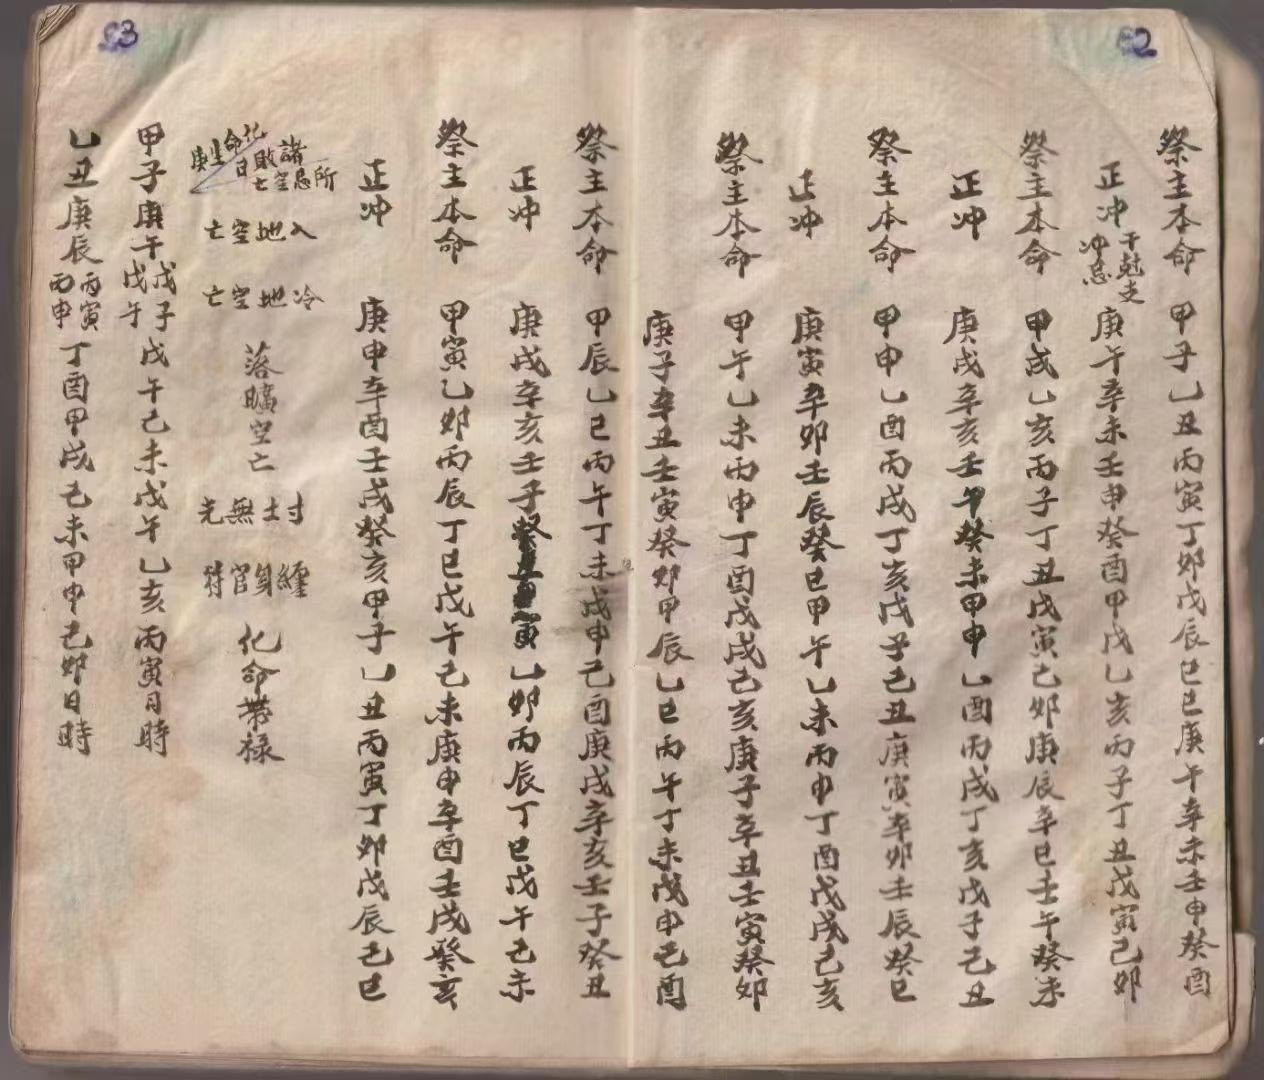 52
祭主本命 甲子乙丑丙寅丁卯戊辰己巳庚午辛未壬申癸酉
正冲 干尅支冲忌 庚午辛未壬申癸酉甲戌乙亥丙子丁丑戊寅己卯
祭主本命 甲戌乙亥丙子丁丑戊寅己卯庚辰辛巳壬午癸未
正冲 庚戌辛亥壬午癸未甲申乙酉丙戌丁亥戊子己丑
祭主本命 甲申乙酉丙戌丁亥戊子己丑庚寅辛卯壬辰癸巳
正冲 庚寅辛卯壬辰癸巳甲午乙未丙申丁酉戊戌己亥
祭主本命 甲午乙未丙申丁酉戊戌己亥庚子辛丑壬寅癸卯
庚子辛丑壬寅癸卯甲辰乙巳丙午丁未戊申己酉
53
祭主本命 甲辰乙巳丙午丁未戊申己酉庚戌辛亥壬子癸丑
正冲 庚戌辛亥壬子癸丑寅乙卯丙辰丁巳戊午己未
祭主本命 甲寅乙卯丙辰丁巳戊午己未庚申辛酉壬戌癸亥
正冲 庚申辛酉壬戌癸亥甲子乙丑丙寅丁卯戊辰己巳
諸敗空亡所忌
化命生日庚
入地空亡
冷地空亡
落曠空亡
封土無光
纏身官符
化命帶祿
甲子庚午戊子戊午戊午己未戊午乙亥丙寅日時
乙丑庚辰丙寅丙申丁酉甲戌己未甲申己卯日時